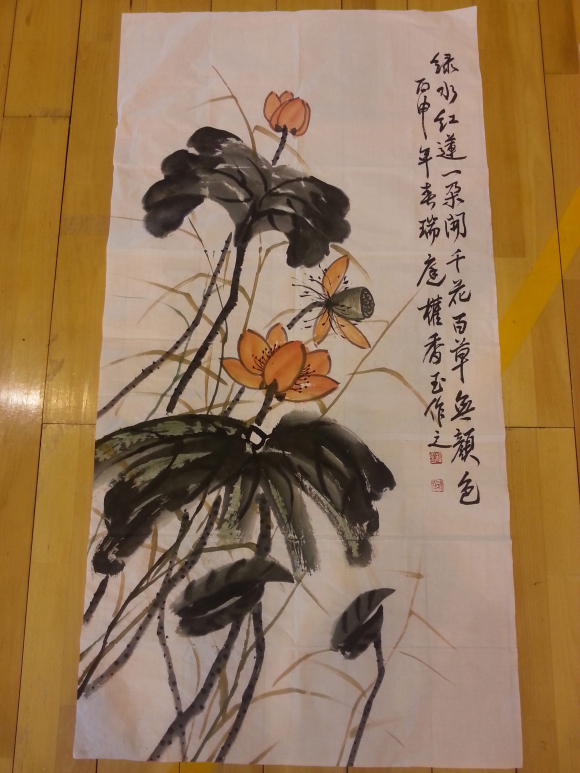 绿水红莲一朵開千花百草無颜色
丙申年春瑞庭權香玉作之